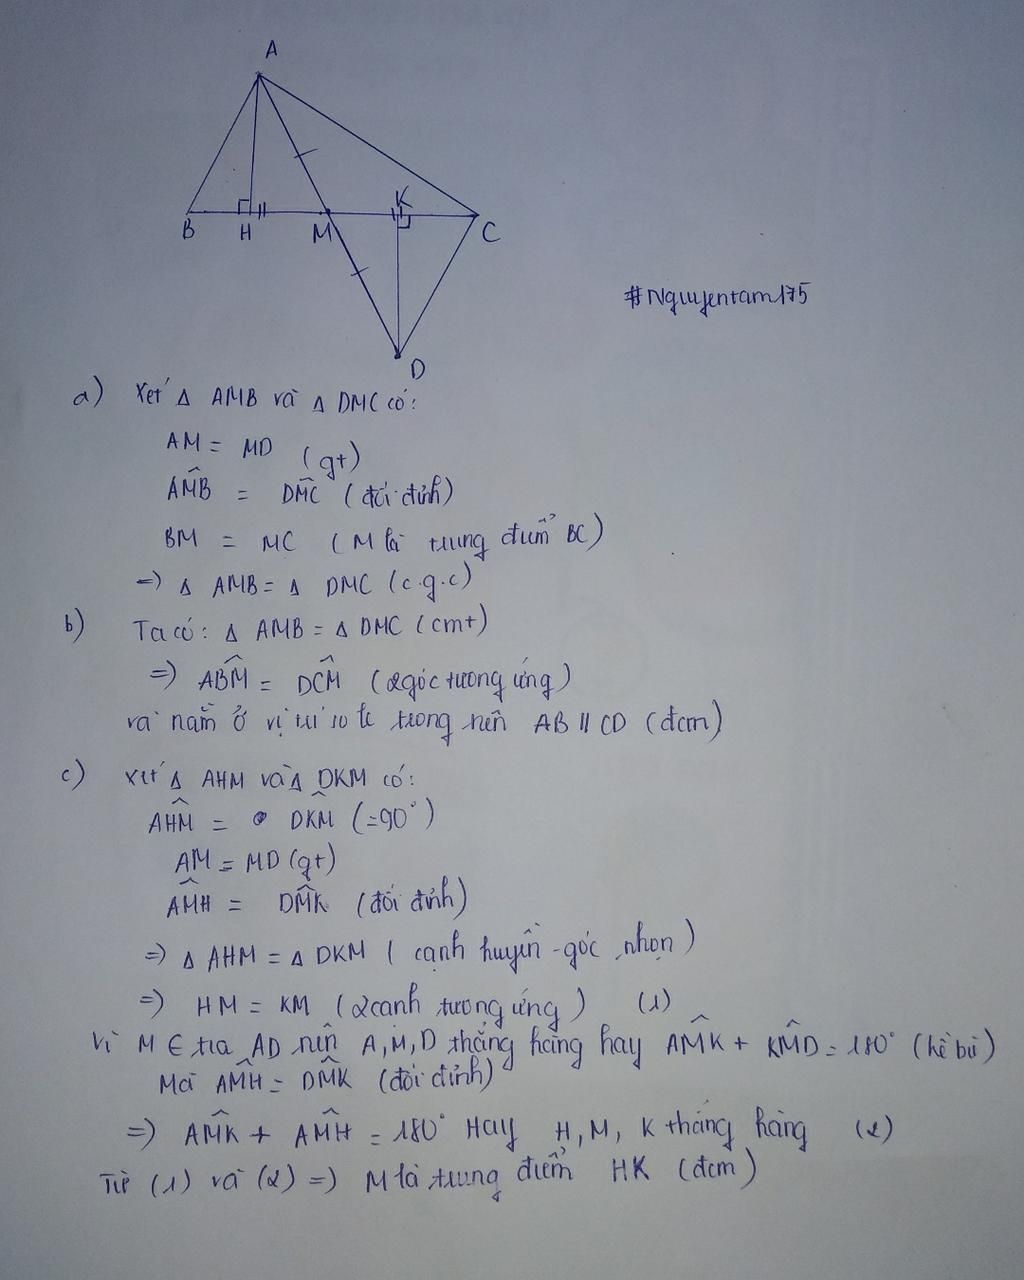 A
B
H
M
K
C
D
#Nguyentam175
a) Xét Δ AMB và Δ DMC có:
AM = MD (gt)
AM̂B = DM̂C (đối đỉnh)
BM = MC (M là trung điểm BC)
=) Δ AMB = Δ DMC (c.g.c)
b) Ta có: Δ AMB = Δ DMC (cmt)
=) AB̂M = DĈM (2 góc tương ứng)
và nằm ở vị trí so le trong nên AB // CD (đcm)
c) Xét Δ AHM và Δ DKM có:
AĤM = DK̂M (=90°)
AM = MD (gt)
AM̂H = DM̂K (đối đỉnh)
=) Δ AHM = Δ DKM ( cạnh huyền - góc nhọn )
=) HM = KM (2 cạnh tương ứng) (1)
Vì M ∈ tia AD nên A, M, D thẳng hàng hay AM̂K + KM̂D = 180° (kề bù)
Mà AM̂H = DM̂K (đối đỉnh)
=) AM̂K + AM̂H = 180° Hay H, M, K thẳng hàng (2)
Từ (1) và (2) =) M là trung điểm HK (đcm)